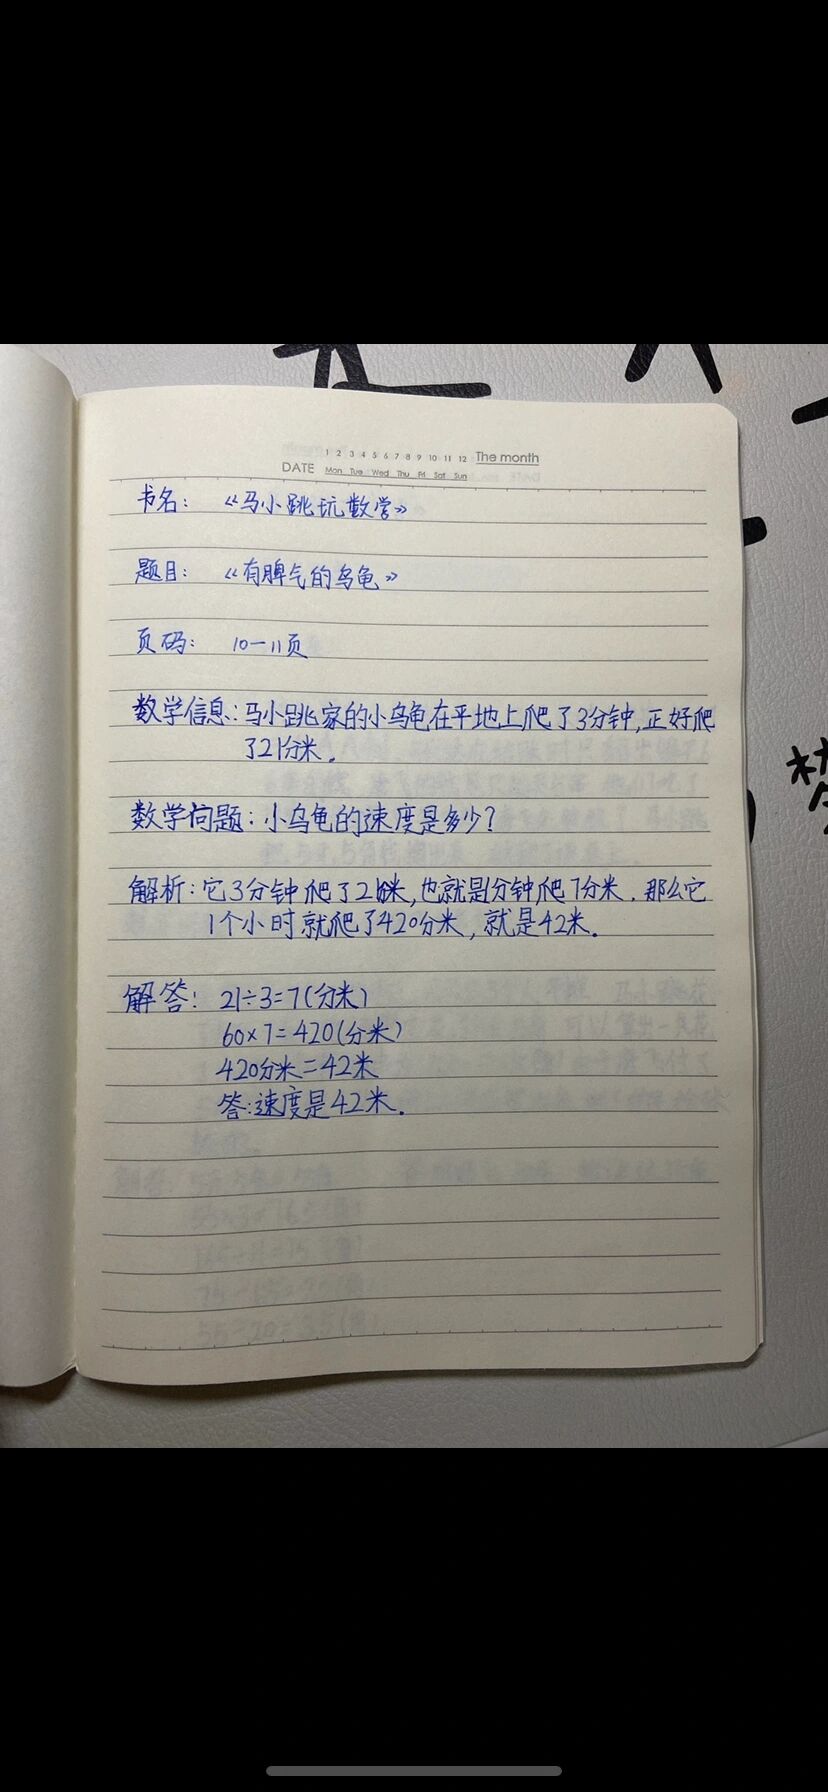 1 2 3 4 5 6 7 8 9 10 11 12 The month
DATE Mon Tue Wed Thu Fri Sat Sun
书名： 《马小跳玩数学》
题目： 《有脾气的乌龟》
页码： 10一11页
数学信息：马小跳家的小乌龟在平地上爬了3分钟，正好爬
了21分米．
数学问题：小乌龟的速度是多少？
解析：它3分钟爬了21分米，也就是1分钟爬7分米．那么它
1个小时就爬了420分米，就是42米．
解答： 21÷3=7(分米)
60×7=420(分米)
420分米=42米
答：速度是42米．